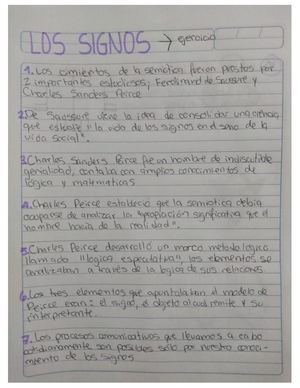 LOS SIGNOS → ejercicio
1. Los cimientos de la semiotica fueron puestos por
2 importantes estudiosos; Ferdinand de Saussure y
Charles Sanders Peirce
2. De Saussure viene la idea de consolidar una ciencia
que estudie "la vida de los signos en el seno de la
vida social".
3. Charles Sanders Peirce fue un hombre de indiscutible
genialidad, contaba con amplios conocimientos de
lógica y matematicas
4. Charles Peirce estableció que la semiotica debia
ocuparse de analizar la "apropiación significativa que el
hombre hacia de la realidad".
5. Charles Peirce desarrolló un marco metodologico
llamado "logica especulativa", los elementos se
analizaban a través de la logica de sus relaciones
6. Los tres elementos que apuntalaban el modelo de
Peirce eran: el signo, el objeto al cual remite y su
interpretante.
7. Los procesos comunicativos que llevamos a cabo
cotidianamente son posibles sólo por nuestro conoci-
miento de los signos